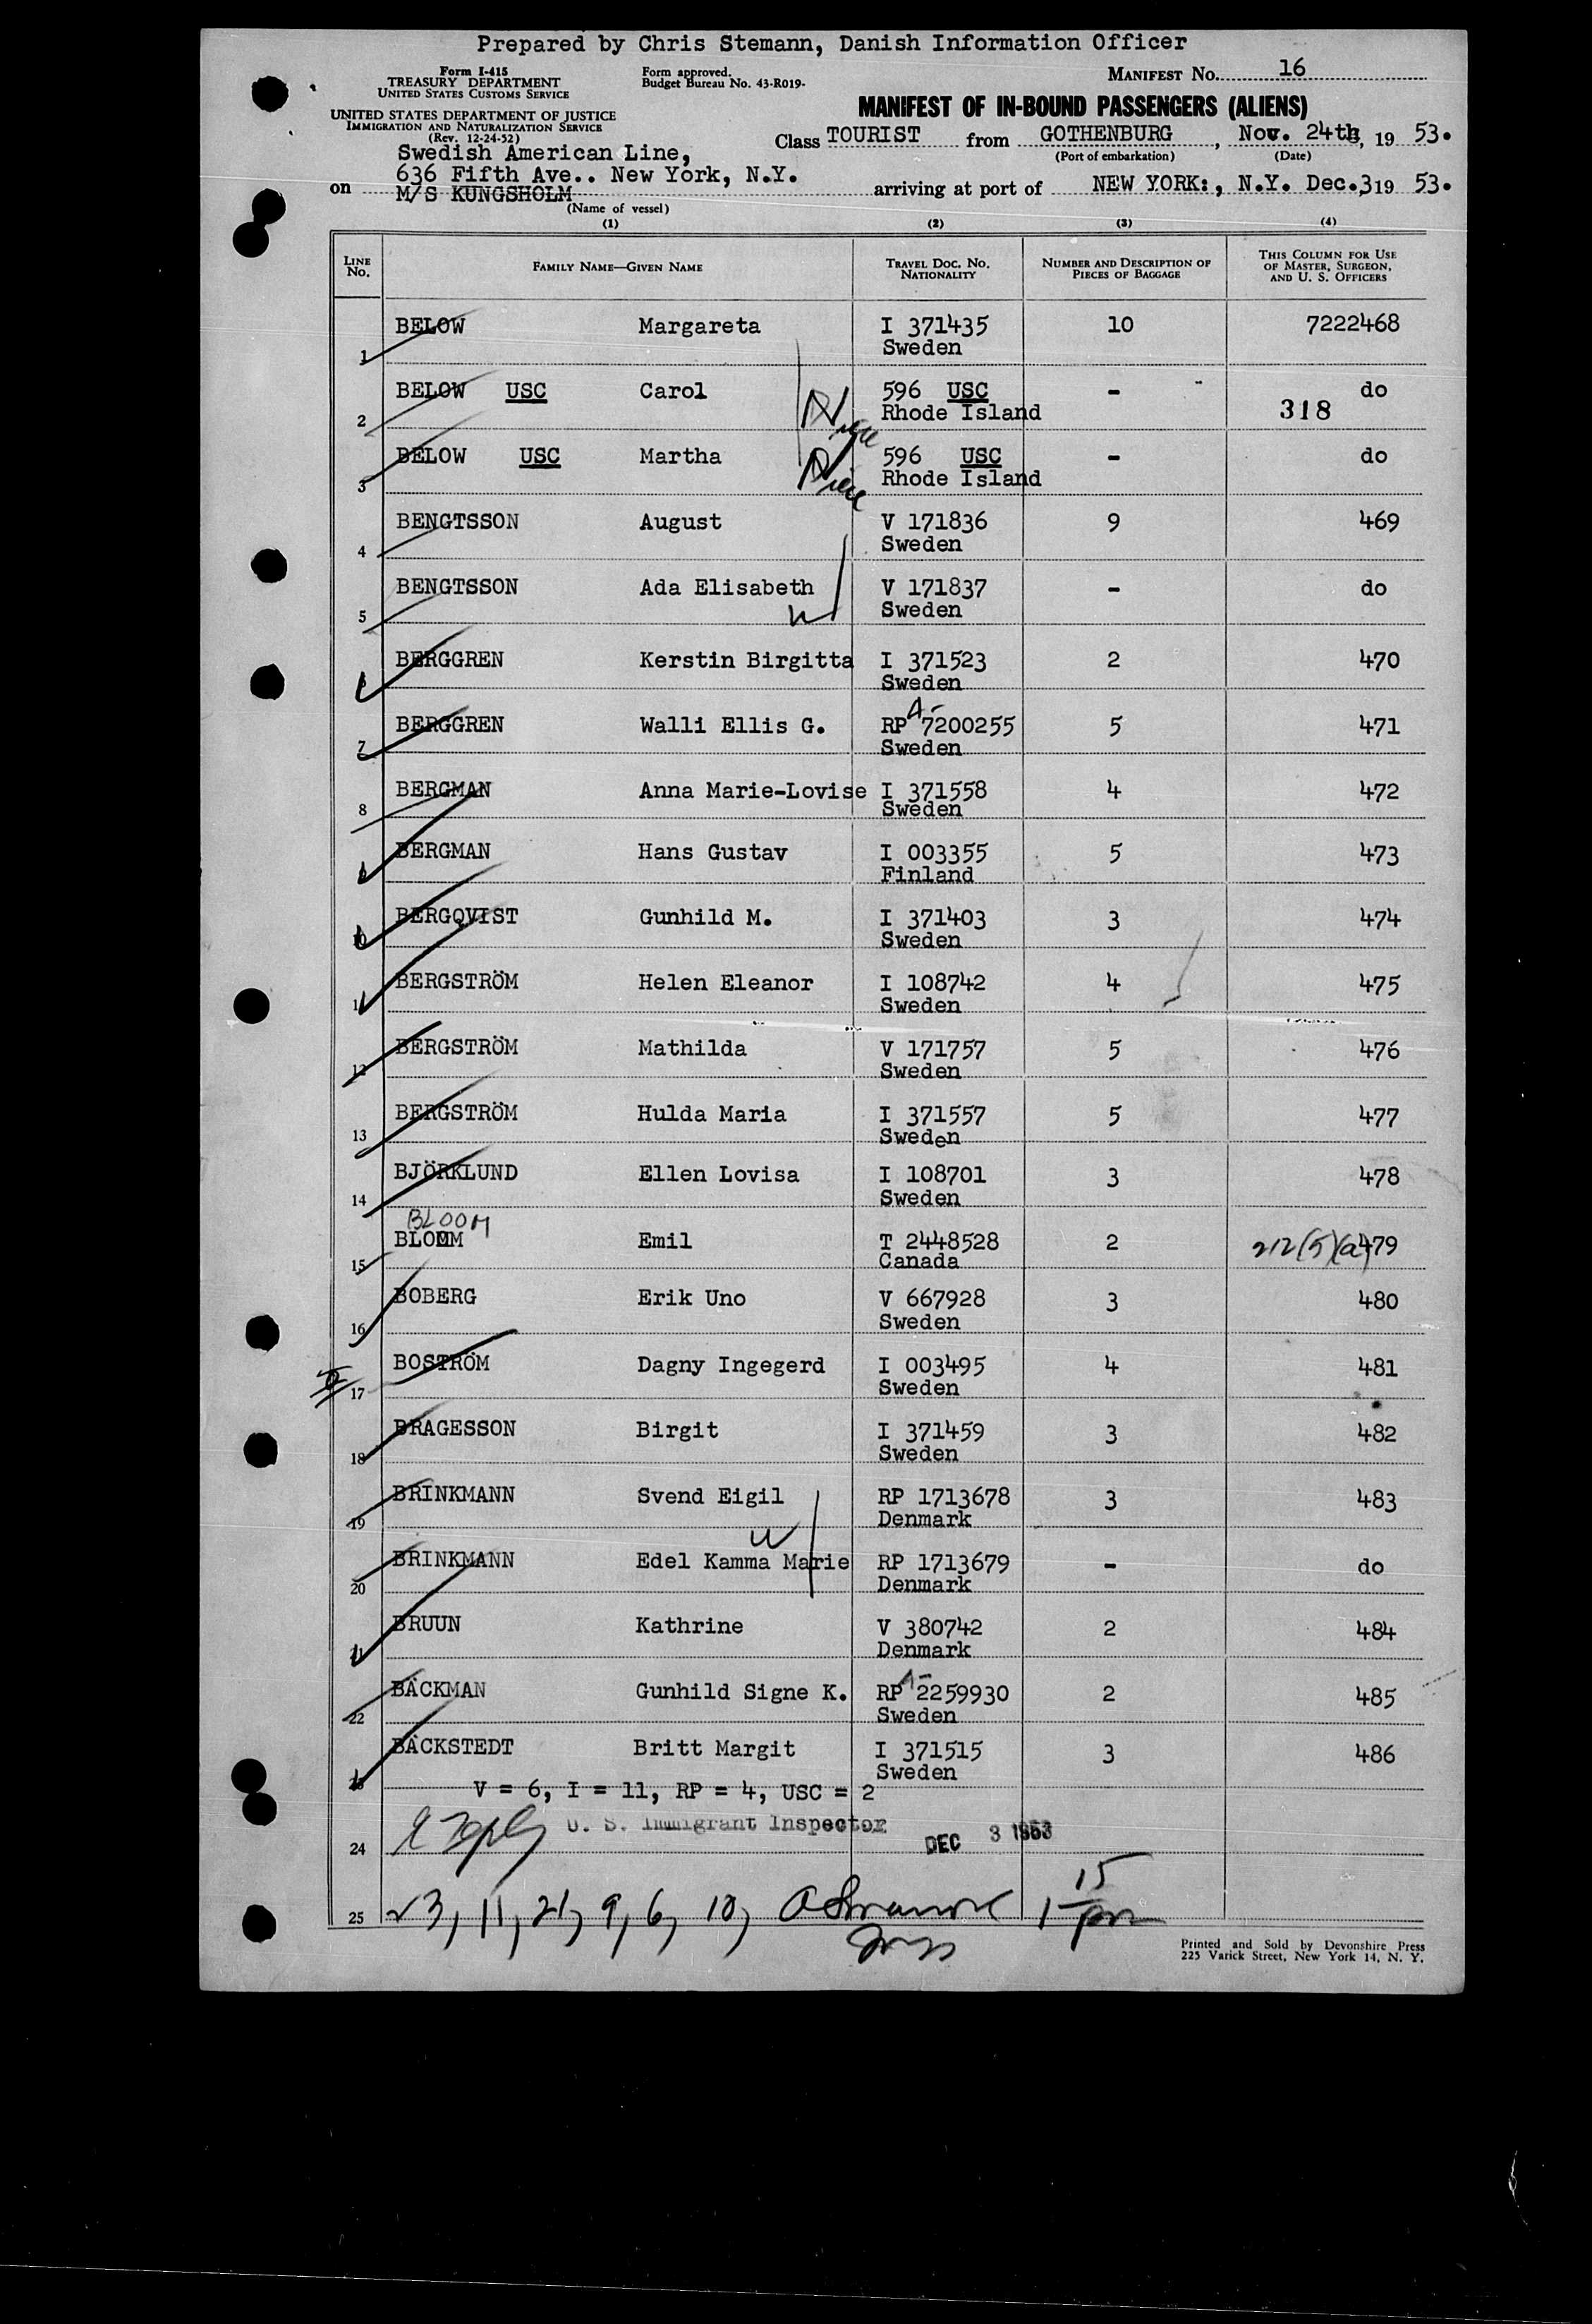 Prepared by Chris Stemann, Danish Information Officer
Form I-415
TREASURY DEPARTMENT
UNITED STATES CUSTOMS SERVICE
Form approved.
Budget Bureau No. 43-R019-
MANIFEST No. 16
UNITED STATES DEPARTMENT OF JUSTICE
IMMIGRATION AND NATURALIZATION SERVICE
(Rev. 12-24-52)
MANIFEST OF IN-BOUND PASSENGERS (ALIENS)
Class TOURIST from GOTHENBURG, Nov. 24th, 19 53.
(Port of embarkation) (Date)
Swedish American Line,
636 Fifth Ave.. New York, N.Y.
on M/S KUNGSHOLM arriving at port of NEW YORK:, N.Y. Dec.3 19 53.
(Name of vessel)
(1) (2) (3) (4)
LINE No. FAMILY NAME—GIVEN NAME TRAVEL DOC. NO. NATIONALITY NUMBER AND DESCRIPTION OF PIECES OF BAGGAGE THIS COLUMN FOR USE OF MASTER, SURGEON, AND U. S. OFFICERS
1 BELOW Margareta I 371435 10 7222468
Sweden
2 BELOW USC Carol 596 USC - do
Rhode Island 318
Niece
3 BELOW USC Martha 596 USC - do
Rhode Island
Niece
4 BENGTSSON August V 171836 9 469
Sweden
5 BENGTSSON Ada Elisabeth V 171837 - do
Sweden
W
6 BERGGREN Kerstin Birgitta I 371523 2 470
Sweden
7 BERGGREN Walli Ellis G. RP A- 7200255 5 471
Sweden
8 BERGMAN Anna Marie-Lovise I 371558 4 472
Sweden
9 BERGMAN Hans Gustav I 003355 5 473
Finland
10 BERGQVIST Gunhild M. I 371403 3 474
Sweden
11 BERGSTRÖM Helen Eleanor I 108742 4 475
Sweden
12 BERGSTRÖM Mathilda V 171757 5 476
Sweden
13 BERGSTRÖM Hulda Maria I 371557 5 477
Sweden
14 BJÖRKLUND Ellen Lovisa I 108701 3 478
Sweden
BLOOM
15 BLOMM Emil T 2448528 2 212(5)(a) 479
Canada
16 BOBERG Erik Uno V 667928 3 480
Sweden
17 BOSTRÖM Dagny Ingegerd I 003495 4 481
Sweden
18 BRAGESSON Birgit I 371459 3 482
Sweden
19 BRINKMANN Svend Eigil RP 1713678 3 483
Denmark
W
20 BRINKMANN Edel Kamma Marie RP 1713679 - do
Denmark
21 BRUUN Kathrine V 380742 2 484
Denmark
22 BÄCKMAN Gunhild Signe K. RP A- 2259930 2 485
Sweden
23 BÄCKSTEDT Britt Margit I 371515 3 486
Sweden
V = 6, I = 11, RP = 4, USC = 2
24 U. S. Immigrant Inspector DEC 3 1953
25 23, 11, 21, 9, 6, 10, 1 15 pm
Printed and Sold by Devonshire Press
225 Varick Street, New York 14, N. Y.